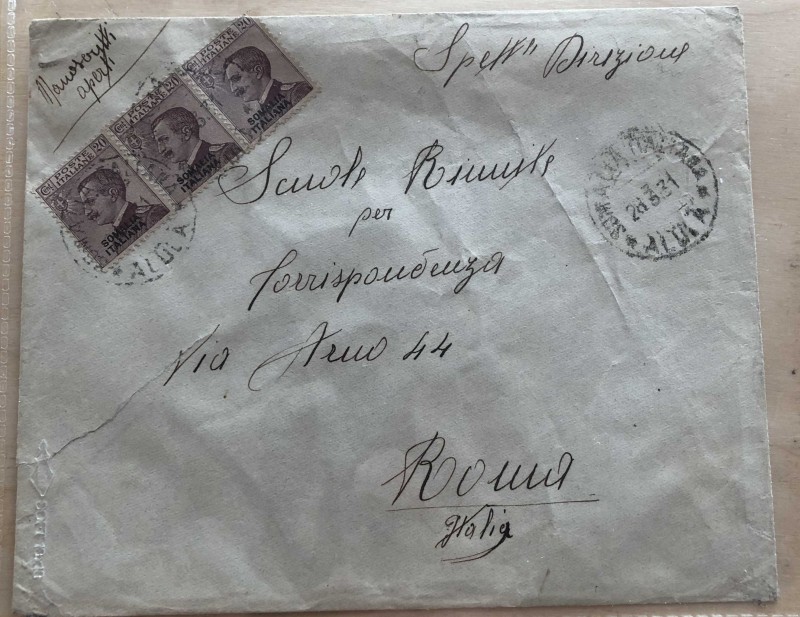 Manoscritti
aperti
POSTE ITALIANE 20
SOMALIA
ITALIANA
POSTE ITALIANE 20
SOMALIA
ITALIANA
POSTE ITALIANE 20
SOMALIA
ITALIANA
* ALULA
Spett. Direzione
Scuole Riunite
per
Corrispondenza
Via Arno 44
Roma
Italia
28.3.31
* ALULA *